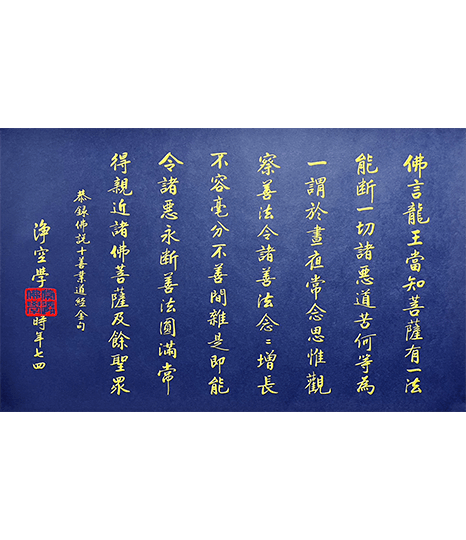 佛言龍王當知菩薩有一法
能断一切諸惡道苦何等為
一謂於晝夜常念思惟觀
察善法令諸善法念〻增長
不容毫分不善間雜是即能
令諸惡永断善法圓滿常
得親近諸佛菩薩及餘聖眾
恭錄佛說十善業道經金句
淨空學時年七四